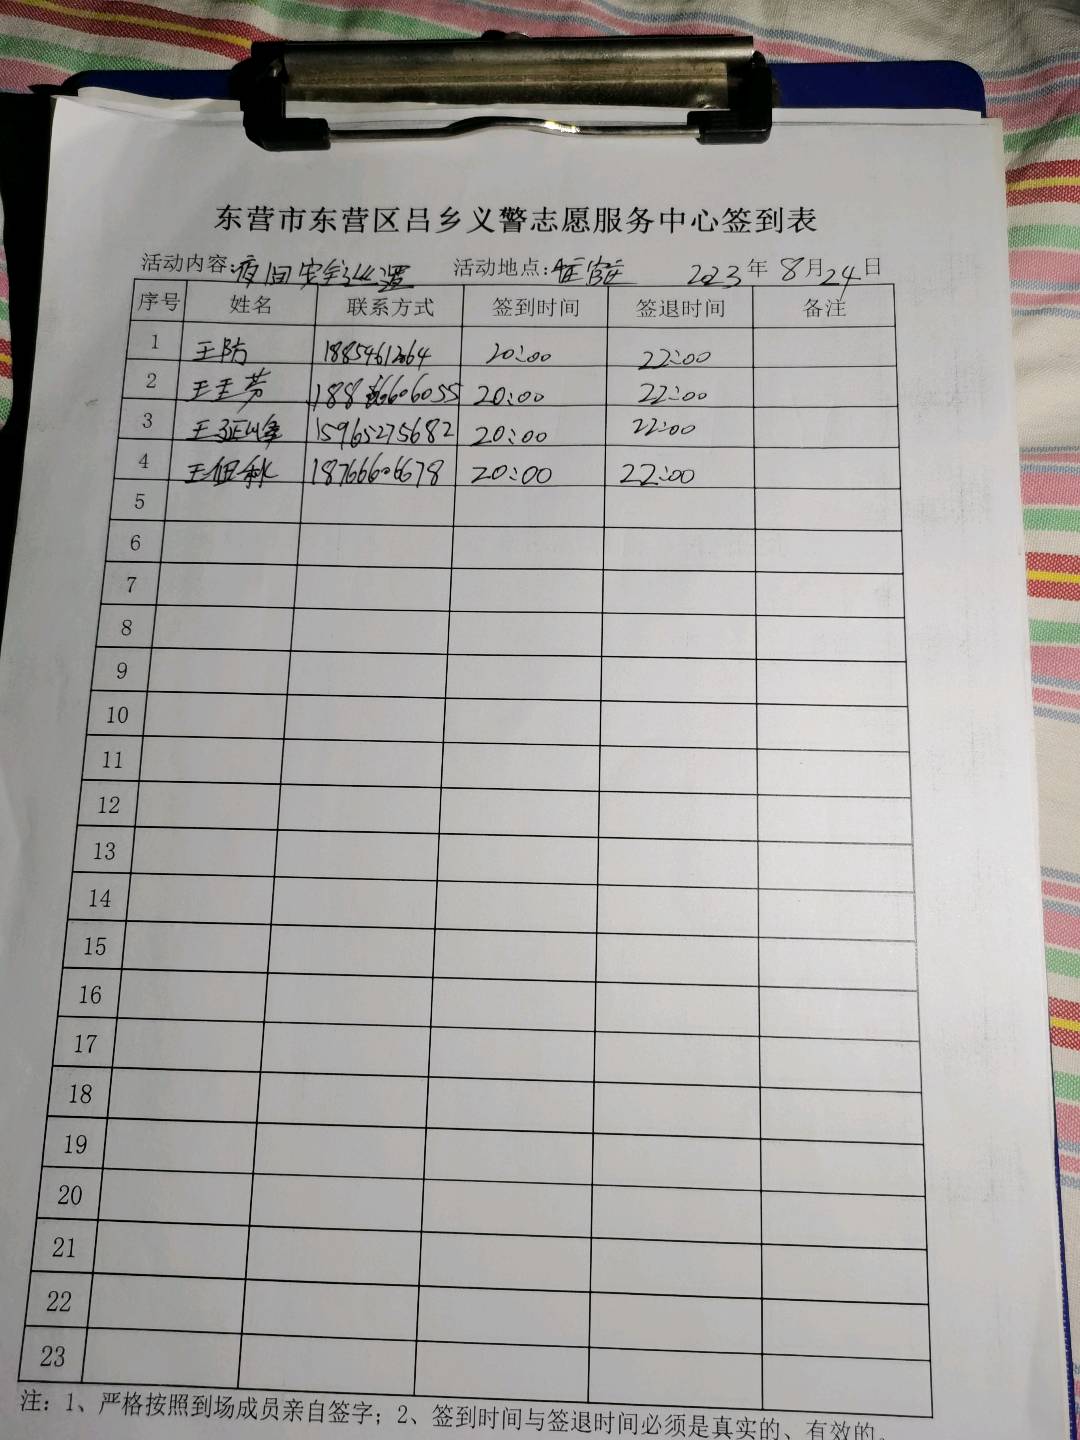 东营市东营区吕乡义警志愿服务中心签到表
活动内容:夜间安全 活动地点: 2023年8月24日
序号 姓名 联系方式 签到时间 签退时间 备注
1 王防 18854612064 20:00 22:00
2 王 芳 20:00 22:00
3 王 峰 15965275682 20:00 22:00
4 王 秋 18766606678 20:00 22:00
5
6
7
8
9
10
11
12
13
14
15
16
17
18
19
20
21
22
23
注：1、严格按照到场成员亲自签字；2、签到时间与签退时间必须是真实的、有效的。